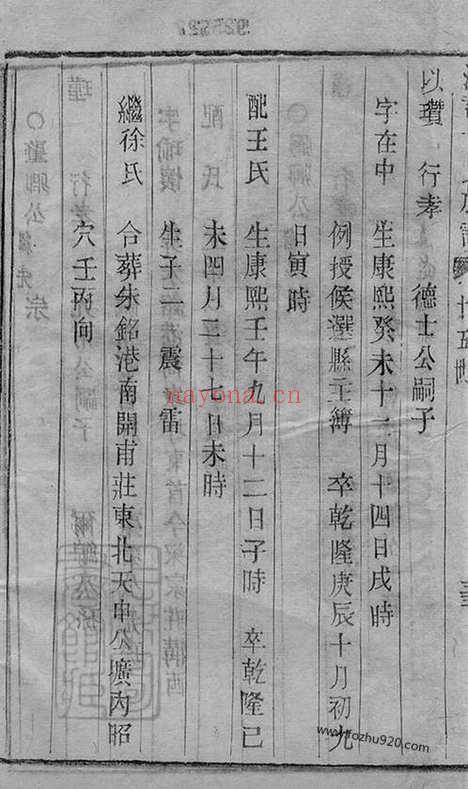 以瓚 行孝 德士公嗣子
字在中 生康熙癸未十二月十四日戌時
例授候選縣主簿 卒乾隆庚辰十月初九
日寅時
配王氏 生康熙壬午九月十二日子時 卒乾隆己
未四月二十七日未時
生子二 震 雷
繼徐氏 合葬朱銘港南開甫莊東北天申公壙內昭
穴壬丙向
nayona.cn
www.fozhu920.com